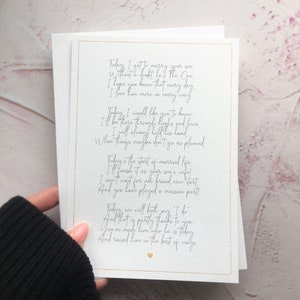 Today I get to marry your son
Without a doubt he's The One
I hope you know that every day
I love him more in every way
Today I would like you to know
I'll be there through highs and lows
I will always hold his hand
When things maybe don't go as planned
Today's the start of married life
I'll finally be your son's wife
I can't wait for our brand new start
And you have played a massive part
Today we will both say 'I do'
And that is partly thanks to you
You've made him who he is today
And raised him in the best of ways